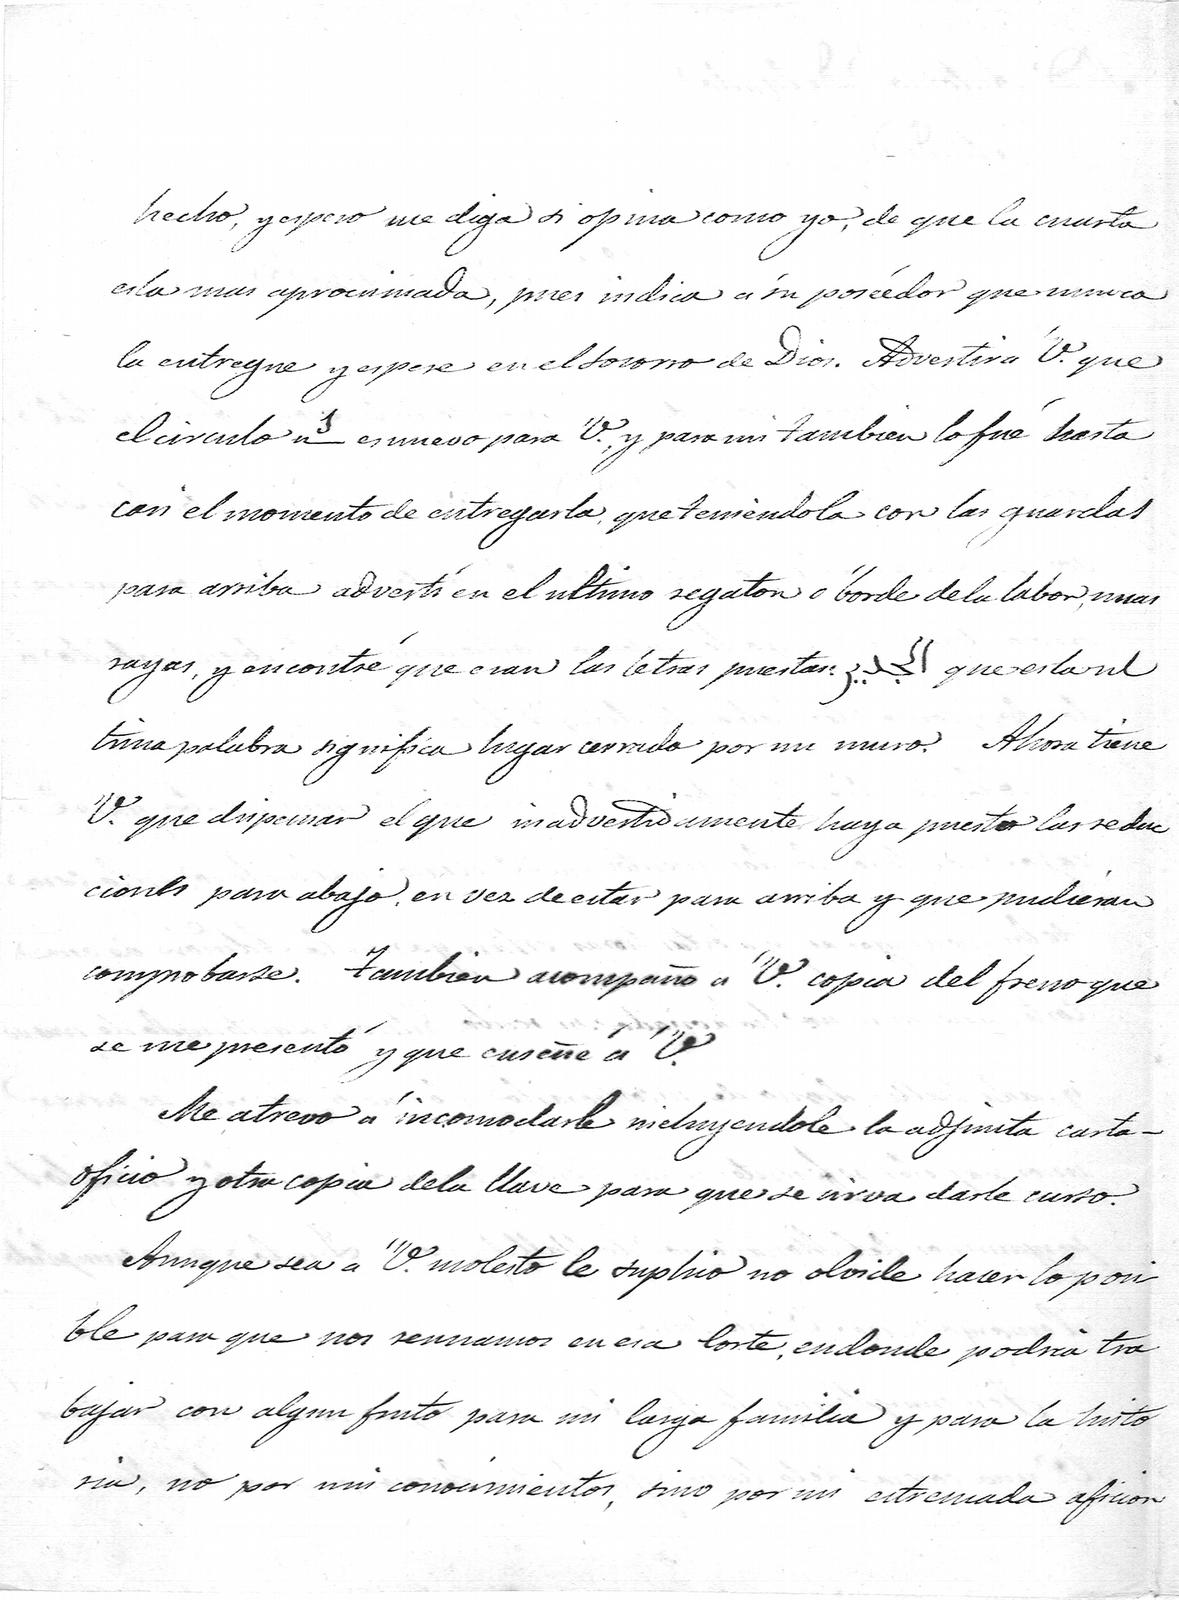 hecho, y espero me diga si opina como yo, de que la cuarta
esla mas aprocsimada, pues indica a su poseédor que nunca
la entregue y espere en el socorro de Dios. Advertira V. que
el circulo nº 1 es nuevo para V. y para mi tambien lo fué hasta
casi el momento de entregarla, que teniendola con las guardas
para arriba advertí en el ultimo regaton ó borde dela labor, unas
rayas, y encontré que eran las letras puestas: que esla ul
tima palabra significa lugar cerrado por un muro. Ahora tiene
V. que dispensar el que inadvertidamente haya puesto las reduc
ciones para abajo, en vez de estar para arriba y que pudieran
comprobarse. Tambien acompaño a V. copia del freno que
se me presentó y que enseñé á V.
Me atrevo á incomodarle incluyendole la adjunta carta-
oficio y otra copia dela llave para que se sirva darle curso.
Aunque sea a V. molesto le suplico no olvide hacer lo posi
ble para que nos reunamos en esa Corte, en donde podria tra
bajar con algun fruto para mi larga familia y para la histo
ria, no por mis conocimientos, sino por mi estremada aficion